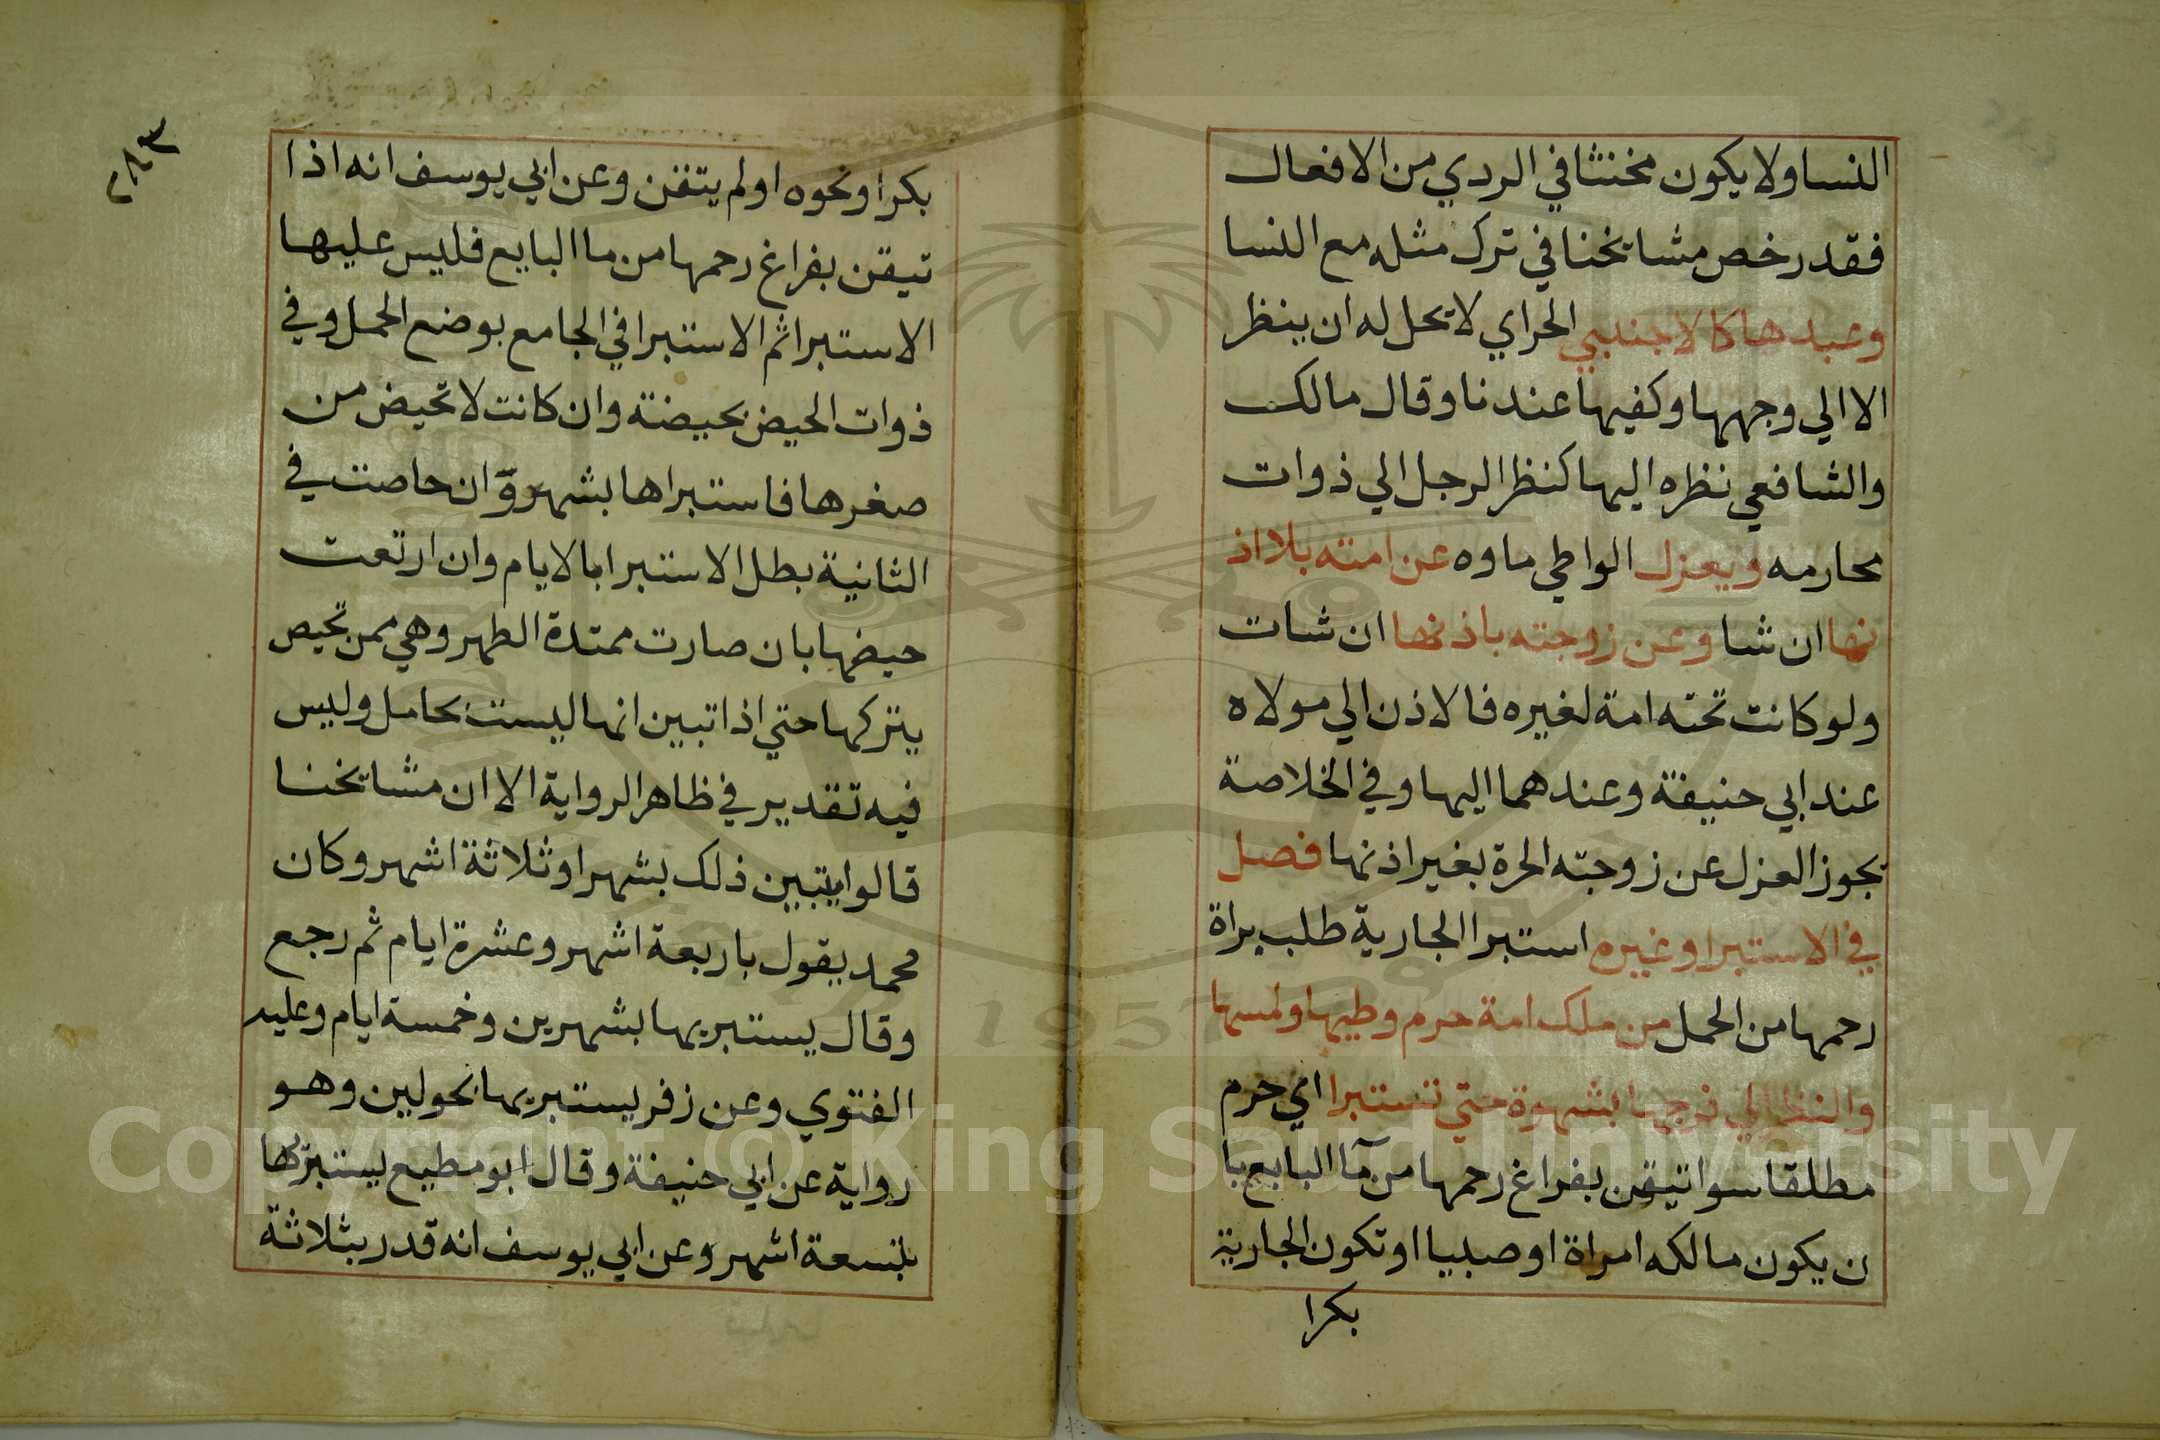 النسا ولا يكون مخنثا في الردي من الافعال
فقد رخص مشايخنا في ترك مثله مع النسا
وعبدها كالاجنبي الحر اي لا يحل له ان ينظر
الا الي وجهها وكفيها عندنا وقال مالك
والشافعي نظره اليها كنظر الرجل الي ذوات
محارمه ويعزل الواطي ماوه عن امته بلا اذ
نها ان شا وعن زوجته باذنها ان شات
ولو كانت تحته امة لغيره فالاذن الي مولاه
عند ابي حنيفة وعندهما اليها وفي الخلاصة
تجوز العزل عن زوجته الحرة بغير اذنها فصل
في الاستبرا وغيره استبرا الجارية طلب براة
رحمها من الحمل من ملك امة حرم وطيها ولمسها
والنظر الي فرجها بشهوة حتي تستبرا اي حرم
مطلقا سوا تيقن بفراغ رحمها من مآ البايع با
ن يكون مالكه امراة او صبيا او تكون الجارية
بكرا
٢٨٣
بكرا ونحوه او لم يتقن وعن ابي يوسف انه اذا
تيقن بفراغ رحمها من ما البايع فليس عليها
الاستبرا ثم الاستبرا في الجامع بوضع الحمل وفي
ذوات الحيض بحيضة وان كانت لا تحيض من
صغرها فاستبراها بشهر وان حاصت في
الثانية بطل الاستبرا بالايام وان ارتعت
حيضها بان صارت ممتدة الطهر وهي ممن تحيص
يتركها حتي اذا تبين انها ليست بحامل وليس
فيه تقدير في ظاهر الرواية الا ان مشايخنا
قالوا يتبين ذلك بشهر او ثلاثة اشهر وكان
محمد يقول باربعة اشهر وعشرة ايام ثم رجع
وقال يستبريها بشهرين وخمسة ايام وعليه
الفتوي وعن زفر يستبريها بحولين وهو
رواية عن ابي حنيفة وقال ابو مطيع يستبرئها
بتسعة اشهر وعن ابي يوسف انه قدر بثلاثة
Copyright © King Saud University
1957